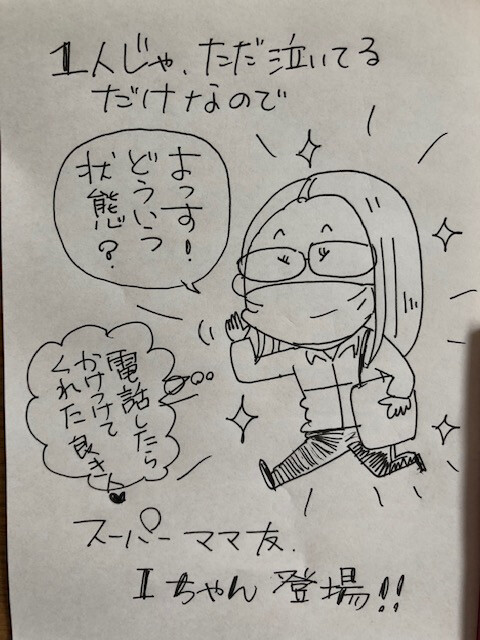 1人じゃ、ただ泣いてる
だけなので
よっす!
どういう
状態?
電話したら
かけつけて
くれた良き人
スーパーママ友、
Iちゃん登場!!